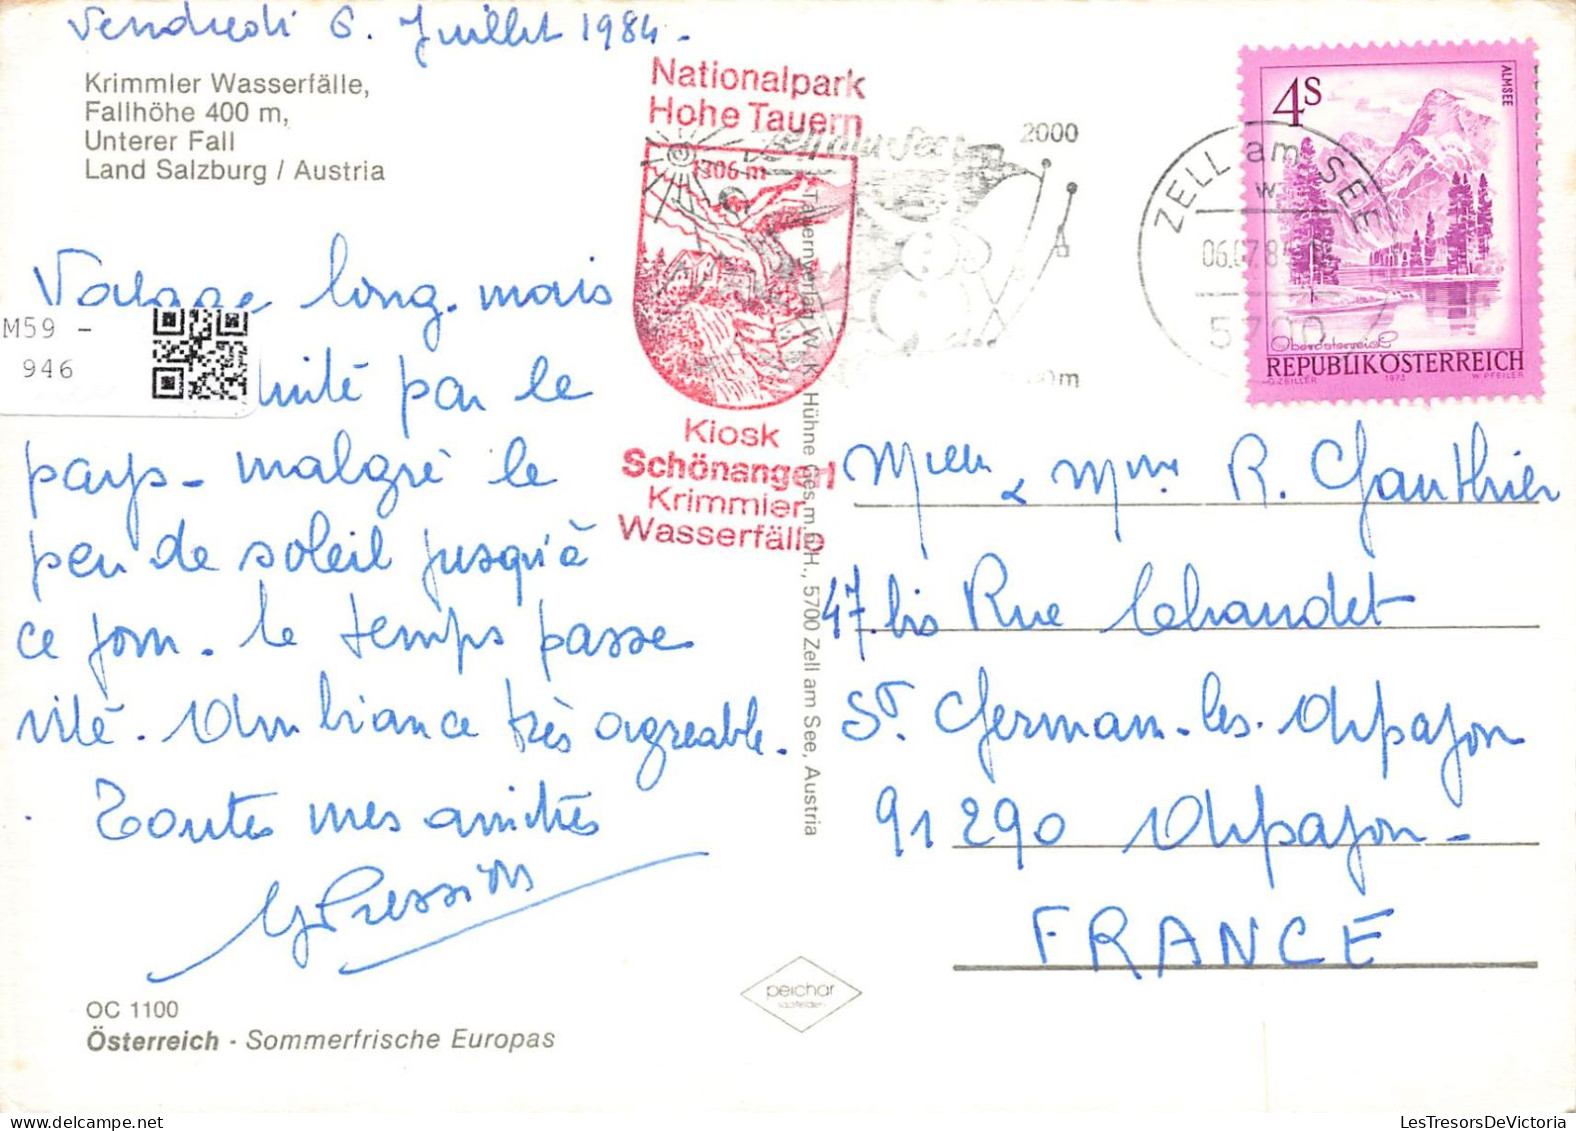 Vendredi 6. Juillet 1984.
Krimmler Wasserfälle,
Fallhöhe 400 m,
Unterer Fall
Land Salzburg / Austria
Nationalpark
Hohe Tauern
1306 m
Kiosk
Schönangerl
Krimmler
Wasserfälle
2000
ZELL am SEE
06.07.84
5700
4S
ALMSEE
Oberösterreich
REPUBLIK ÖSTERREICH
G. ZEILLER 1973 W. PFEILER
M59 -
946
Voyage long. mais
par le
pays - malgré le
peu de soleil jusqu'à
ce jour. Le temps passe
vite. Ambiance très agréable.
Toutes mes amitiés
Tauernverlag W. K. Hühne Ges.m.b.H., 5700 Zell am See, Austria
& Mme R. Gauthier
47. bis Rue
St. Germain-les-Arpajon
91290 Arpajon -
FRANCE
OC 1100
Österreich - Sommerfrische Europas
peichar
saalfelden
LesTresorsDeVictoria.com